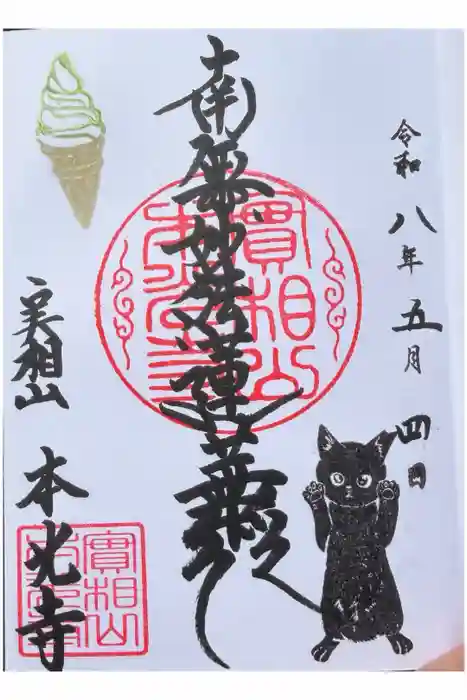 令和八年五月四日
南無妙法蓮華経
實相山
本光寺
實相山
本光寺
実相山 本光寺